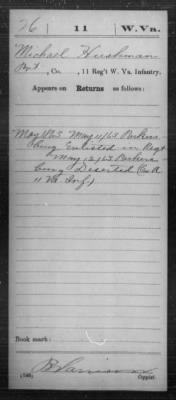 26 | 11 | W. Va.
Michael Hershman
Pvt, Co. , 11 Reg't W. Va. Infantry.
Appears on Returns as follows:
May 1863. May 11/63 Parkers-
burg Enlisted in Regt
May 12/63 Parkers-
burg Deserted (Co A
11 Va. Inf.)
Book mark:
(546)
Copyist.